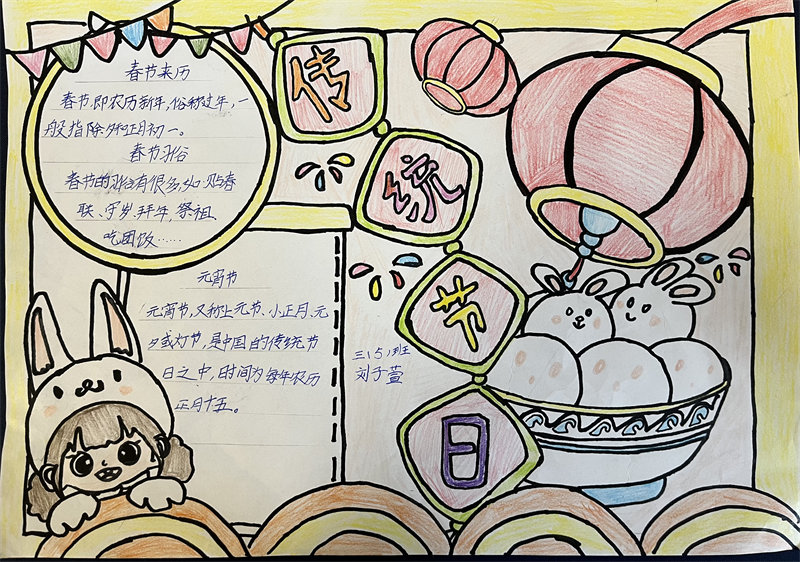 传
统
节
日
春节来历
春节,即农历新年,俗称过年,一
般指除夕和正月初一。
春节习俗
春节的习俗有很多,如:贴春
联、守岁、拜年、祭祖、
吃团饭……
元宵节
元宵节,又称上元节、小正月、元
夕或灯节,是中国的传统节
日之中,时间为每年农历
正月十五。
三(5)班
刘子萱